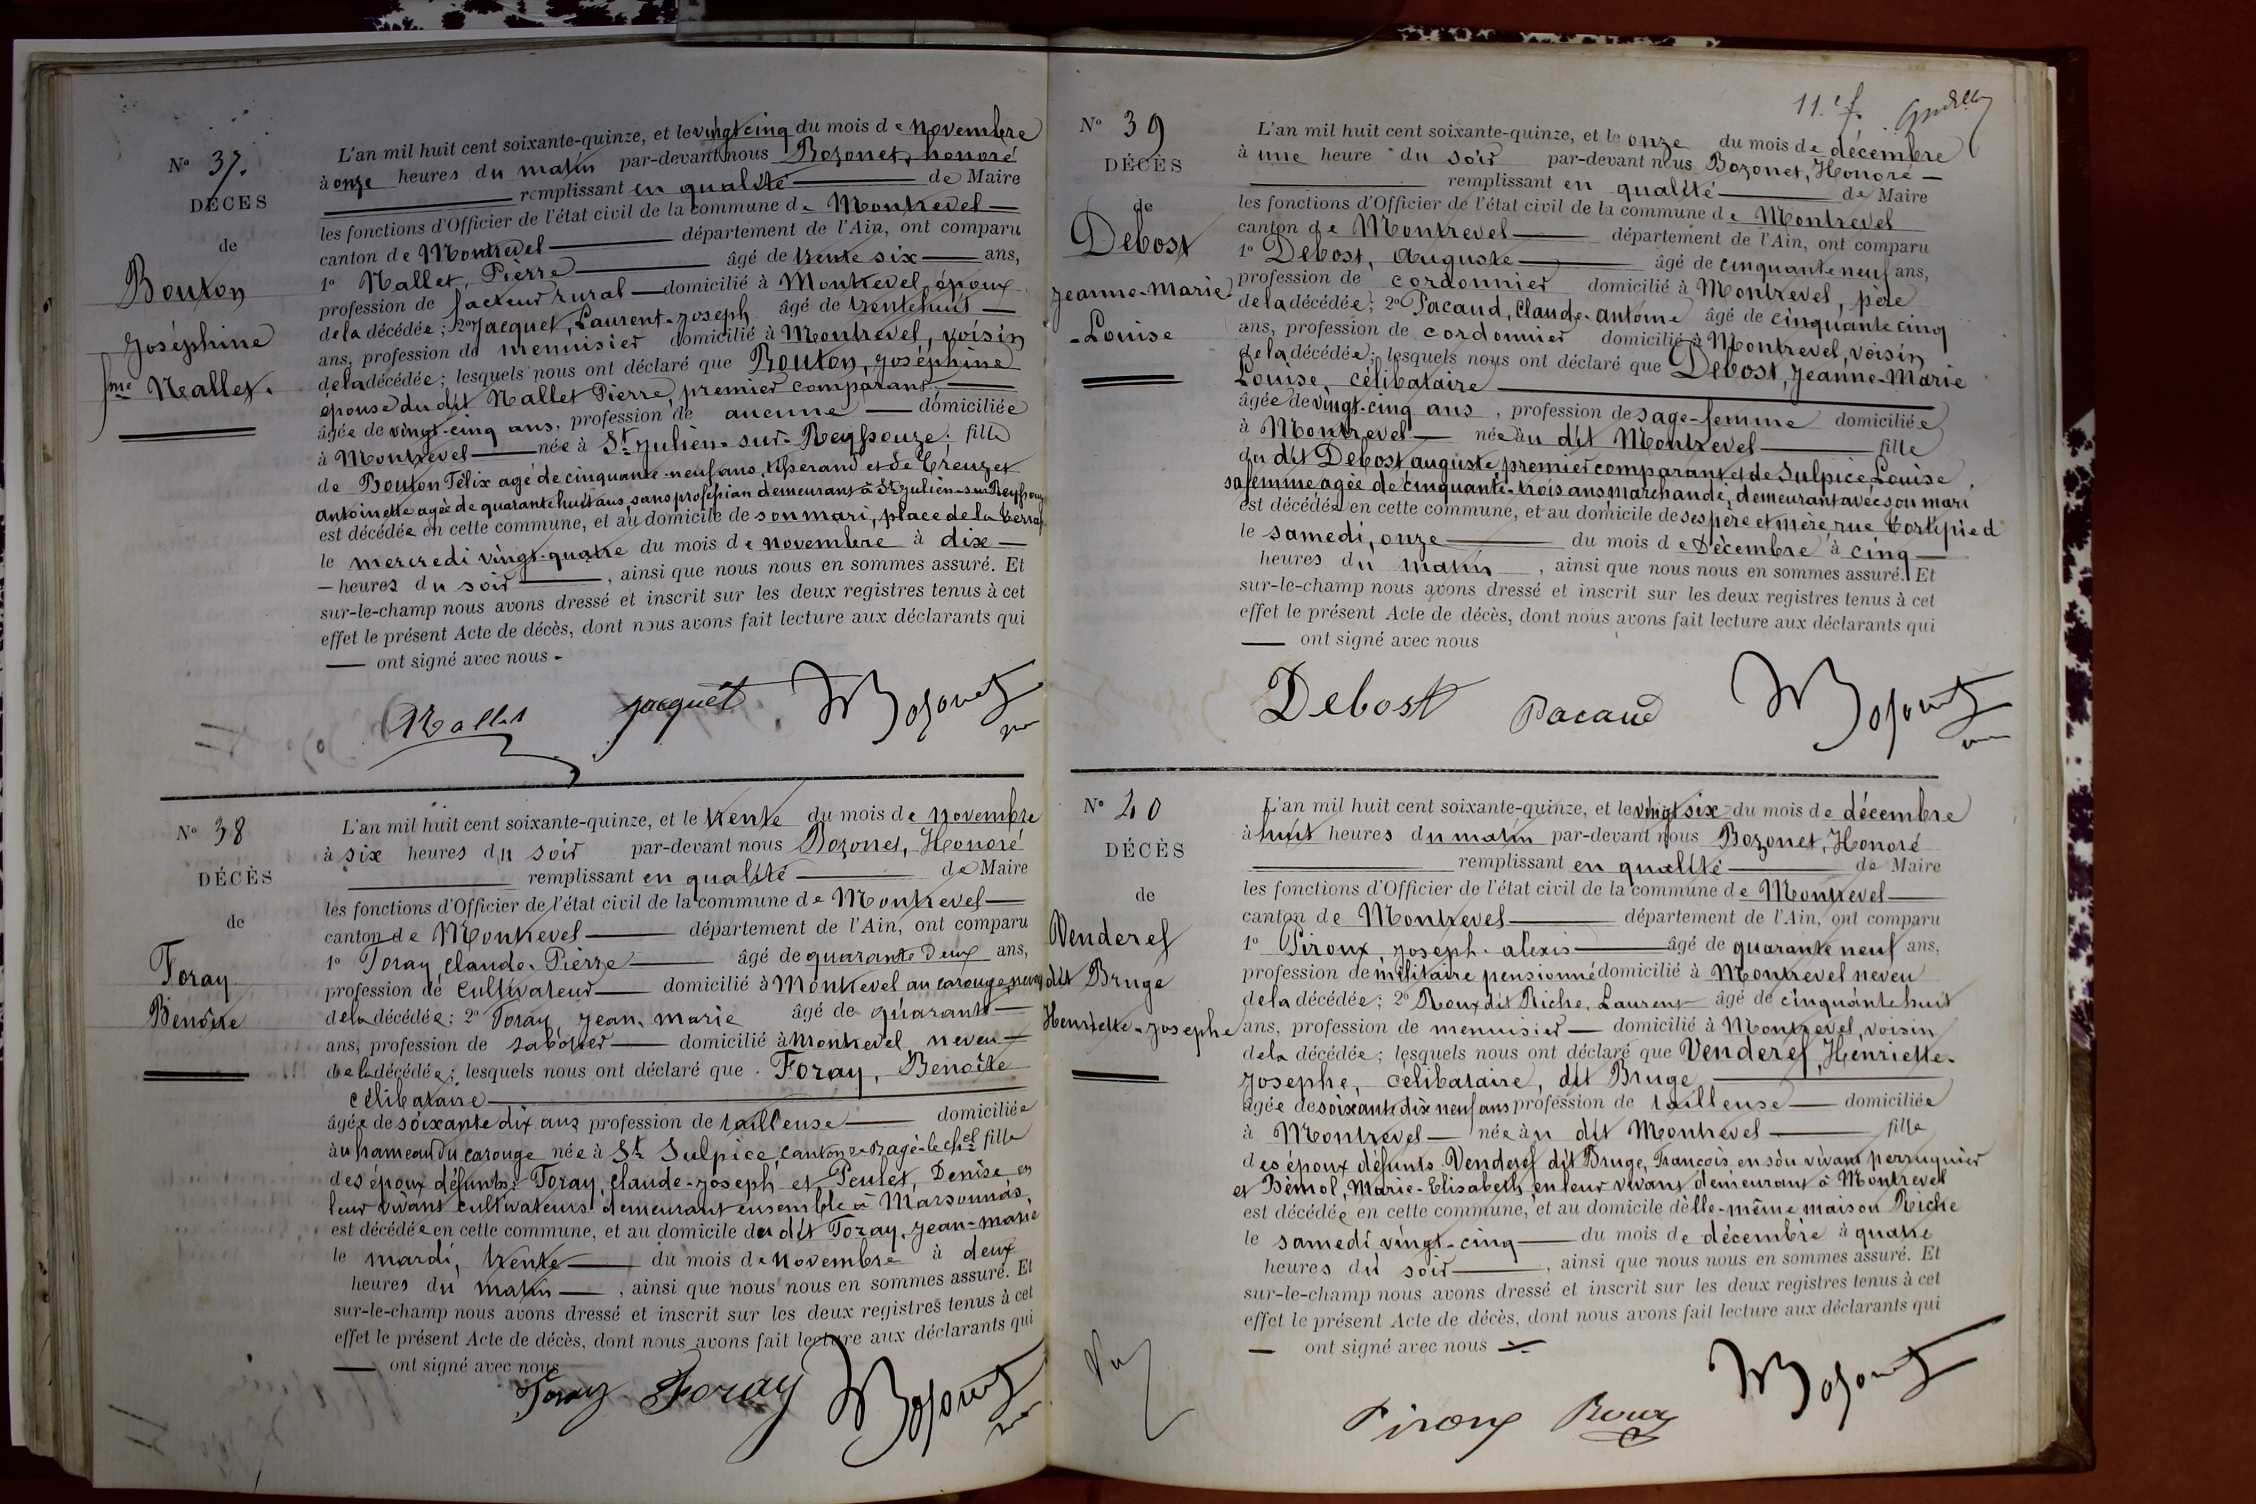 N° 37.
DÉCÈS
de
Bouton
Joséphine
fme Nallet.
L'an mil huit cent soixante-quinze, et le vingt cinq du mois de novembre
à onze heures du matin par-devant nous Bozonet, honoré
remplissant en qualité de Maire
les fonctions d'Officier de l'état civil de la commune de Montrevel
canton de Montrevel département de l'Ain, ont comparu
1° Nallet, Pierre âgé de trente six ans,
profession de facteur rural domicilié à Montrevel, époux
de la décédée; 2° Jacquet, Laurent-Joseph âgé de trente huit
ans, profession de menuisier domicilié à Montrevel, voisin
de la décédée; lesquels nous ont déclaré que Bouton, Joséphine
épouse du dit Nallet Pierre, premier comparant,
âgée de vingt-cinq ans, profession de aucune domiciliée
à Montrevel née à St Julien-sur-Reyssouze. fille
de Bouton Félix agé de cinquante-neuf ans, tisserand et de Creuzet
antoinette agée de quarante huit ans, sans profession demeurant à St Julien-sur Reyssouze
est décédée en cette commune, et au domicile de son mari, place de la
le mercredi vingt-quatre du mois de novembre à dix
heures du soir, ainsi que nous nous en sommes assuré. Et
sur-le-champ nous avons dressé et inscrit sur les deux registres tenus à cet
effet le présent Acte de décès, dont nous avons fait lecture aux déclarants qui
ont signé avec nous.
Nallet Jacquet Bozonet
N° 38
DÉCÈS
de
Foray
Benoite
L'an mil huit cent soixante-quinze, et le trente du mois de novembre
à six heures du soir par-devant nous Bozonet, Honoré
remplissant en qualité de Maire
les fonctions d'Officier de l'état civil de la commune de Montrevel
canton de Montrevel département de l'Ain, ont comparu
1° Foray, claude-Pierre âgé de quarante Deux ans,
profession de Cultivateur domicilié à Montrevel au carouge, neveu
de la décédée; 2° Foray, Jean-marie âgé de quarante
ans, profession de sabotier domicilié à Montrevel, neveu
de la décédée; lesquels nous ont déclaré que Foray, Benoîte
célibataire
âgée de soixante dix ans profession de tailleuse domiciliée
au hameau du carouge née à St Sulpice, canton de Bagé-le chel fille
des époux défunts: Foray, Claude-Joseph et Peulet, Denise en
leur vivant cultivateurs demeurant ensemble à Marsonnas,
est décédée en cette commune, et au domicile du dit Foray, Jean-marie
le mardi, trente du mois de novembre à deux
heures du matin, ainsi que nous nous en sommes assuré. Et
sur-le-champ nous avons dressé et inscrit sur les deux registres tenus à cet
effet le présent Acte de décès, dont nous avons fait lecture aux déclarants qui
ont signé avec nous
Foray Foray Bozonet
11.e f.
N° 39
DÉCÈS
de
Debost
Jeanne-Marie
-Louise
L'an mil huit cent soixante-quinze, et le onze du mois de décembre
à une heure du soir par-devant nous Bozonet, Honoré
remplissant en qualité de Maire
les fonctions d'Officier de l'état civil de la commune de Montrevel
canton de Montrevel département de l'Ain, ont comparu
1° Debost, Auguste âgé de cinquante neuf ans,
profession de cordonnier domicilié à Montrevel, père
de la décédée; 2° Pacaud, Claude-antoine âgé de cinquante cinq
ans, profession de cordonnier domicilié à Montrevel, voisin
de la décédée; lesquels nous ont déclaré que Debost, Jeanne-Marie
Louise, célibataire
âgée de vingt-cinq ans, profession de sage-femme domiciliée
à Montrevel née au dit Montrevel fille
du dit Debost auguste, premier comparant et de Sulpice Louise
sa femme agée de cinquante-trois ans, marchande, demeurant avec son mari
est décédée en cette commune, et au domicile de ses père et mère, rue Tortipied
le samedi, onze du mois de Décembre à cinq
heures du matin, ainsi que nous nous en sommes assuré. Et
sur-le-champ nous avons dressé et inscrit sur les deux registres tenus à cet
effet le présent Acte de décès, dont nous avons fait lecture aux déclarants qui
ont signé avec nous
Debost Pacaud Bozonet
N° 40
DÉCÈS
de
Venderef
dit Bruge
Henriette-Josephe
L'an mil huit cent soixante-quinze, et le vingt six du mois de décembre
à huit heures du matin par-devant nous Bozonet, Honoré
remplissant en qualité de Maire
les fonctions d'Officier de l'état civil de la commune de Montrevel
canton de Montrevel département de l'Ain, ont comparu
1° Piroux, Joseph-alexis âgé de quarante neuf ans,
profession de militaire pensionné domicilié à Montrevel neveu
de la décédée; 2° Roux dit Riche, Laurent âgé de cinquante huit
ans, profession de menuisier domicilié à Montrevel, voisin
de la décédée; lesquels nous ont déclaré que Venderef, Henriette-
Josephe, célibataire, dit Bruge
âgée de soixante dix neuf ans profession de tailleuse domiciliée
à Montrevel née au dit Montrevel fille
des époux défunts Venderef dit Bruge, François en son vivant perruquier
et Bémol, Marie-Elisabeth, en leur vivant demeurant à Montrevel
est décédée en cette commune, et au domicile d'elle-même maison Riche
le samedi vingt-cinq du mois de décembre à quatre
heures du soir, ainsi que nous nous en sommes assuré. Et
sur-le-champ nous avons dressé et inscrit sur les deux registres tenus à cet
effet le présent Acte de décès, dont nous avons fait lecture aux déclarants qui
ont signé avec nous
Vu
Piroux Roux Bozonet